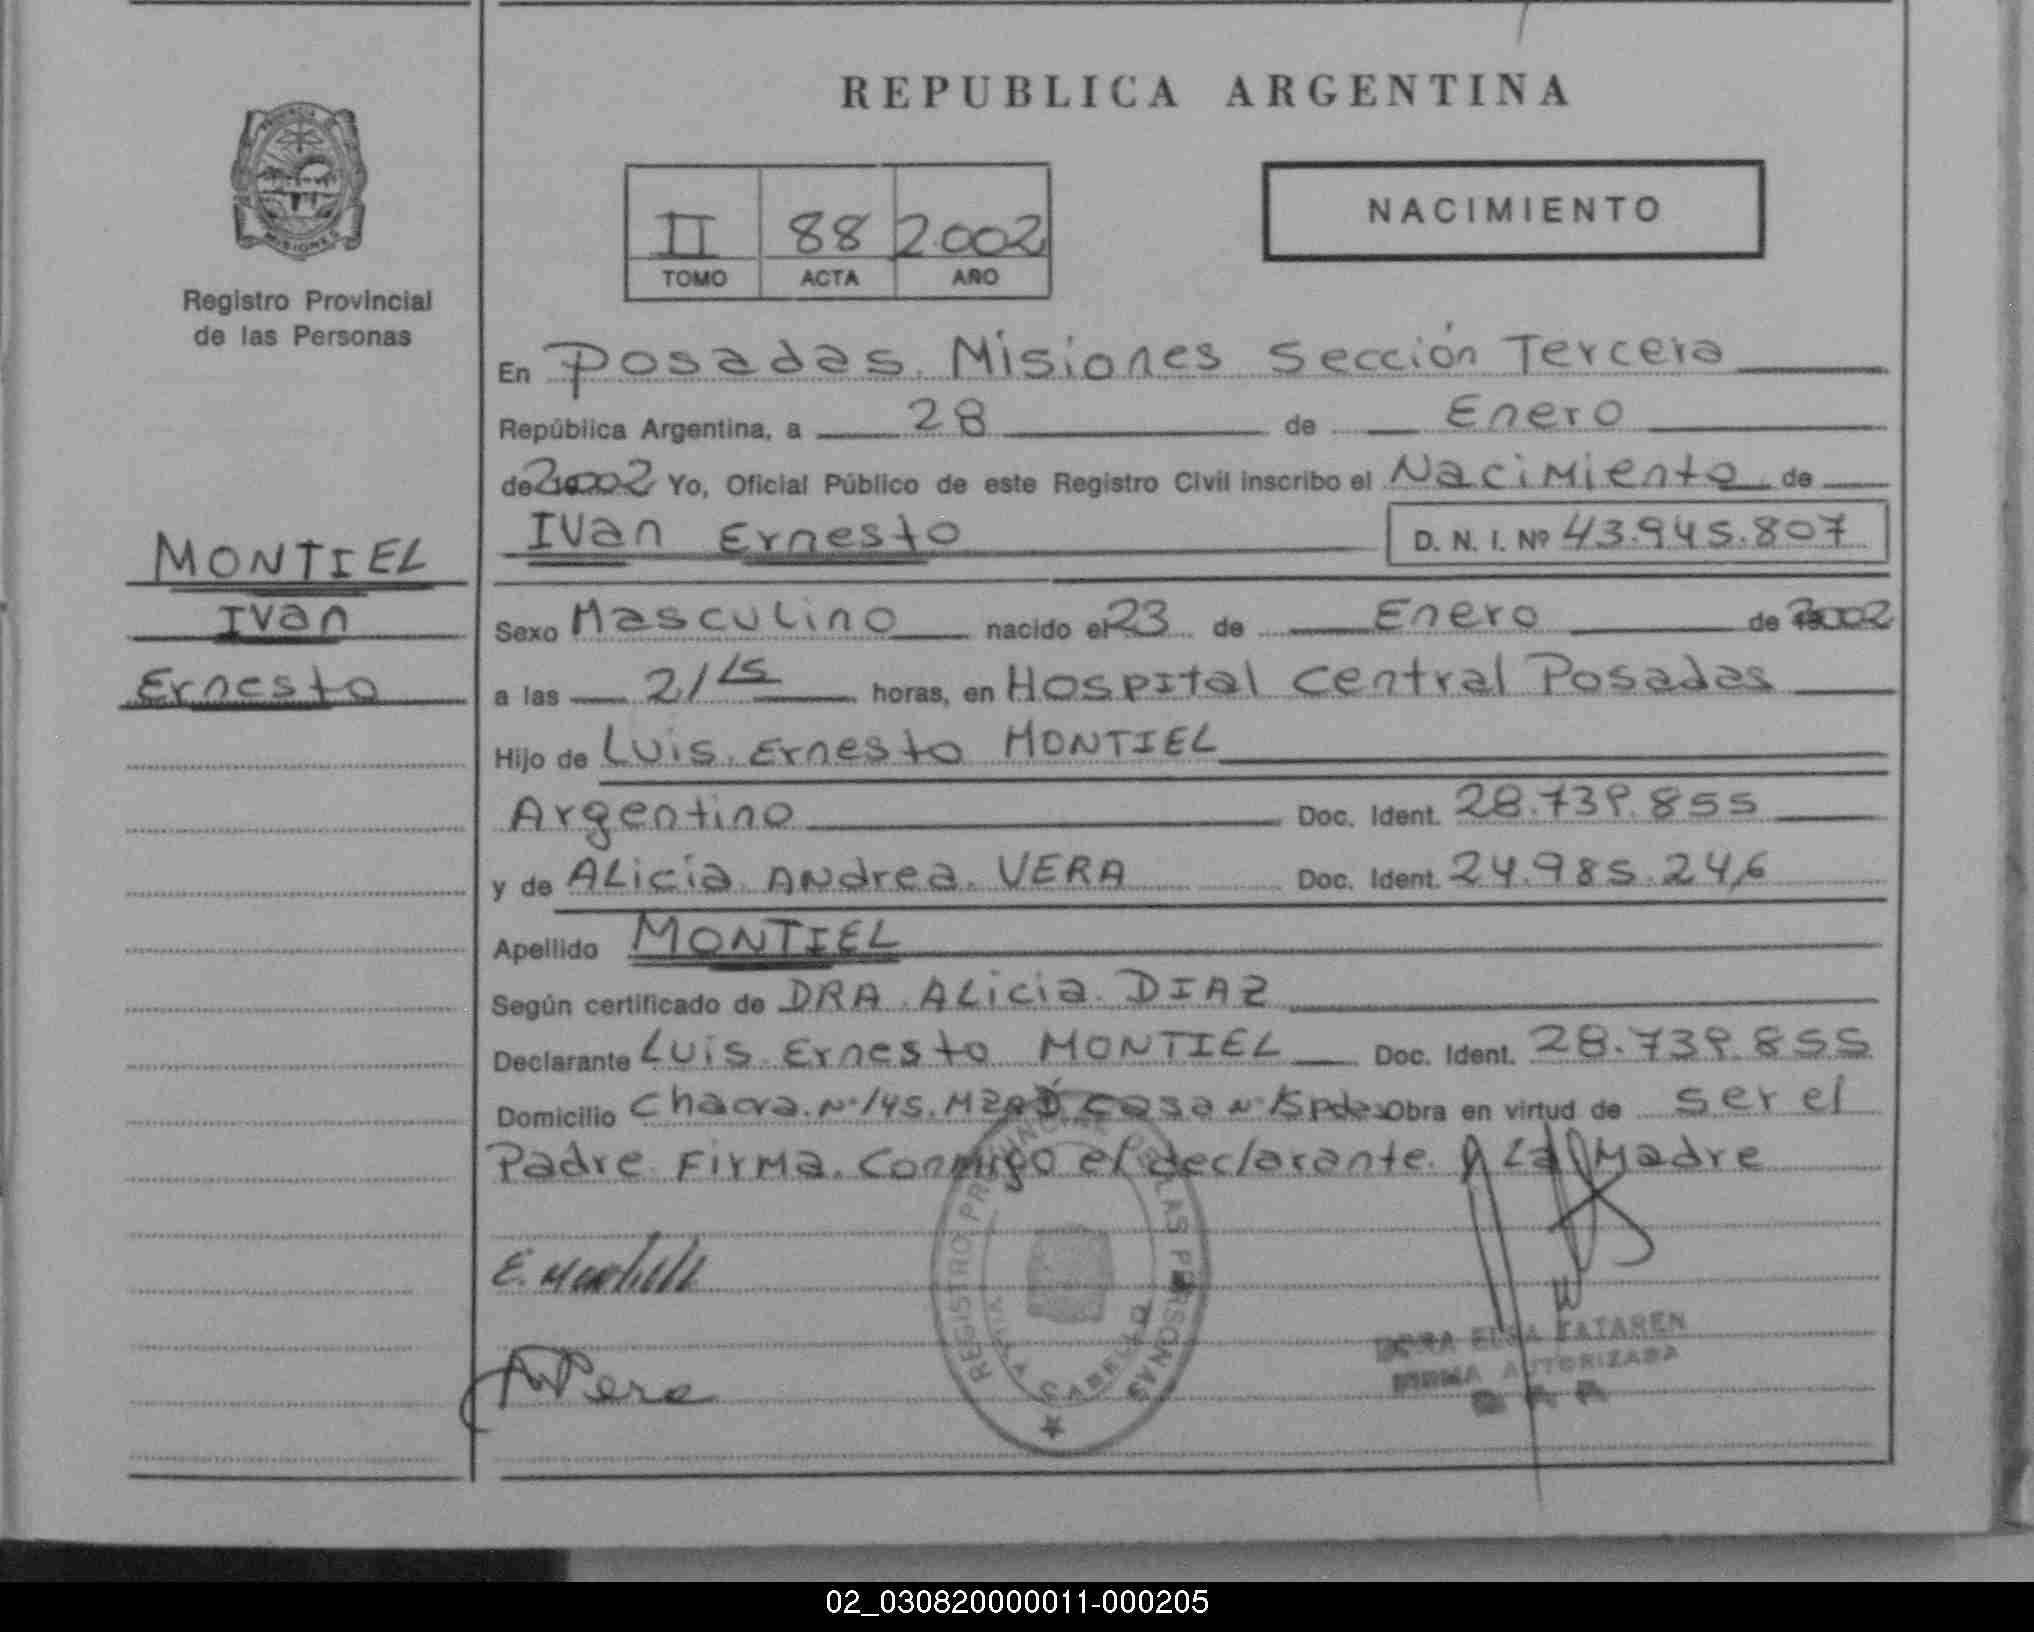 REPUBLICA ARGENTINA
PROVINCIA
MISIONES
Registro Provincial
de las Personas
NACIMIENTO
II 88 2.002
TOMO ACTA AÑO
En Posadas Misiones Sección Tercera
República Argentina, a 28 de Enero
de 2002 Yo, Oficial Público de este Registro Civil inscribo el Nacimiento de
Ivan Ernesto D. N. I. Nº 43.945.807
MONTIEL
Ivan
Ernesto
Sexo Masculino nacido el 23 de Enero de 2002
a las 21/15 horas, en Hospital Central Posadas
Hijo de Luis Ernesto MONTIEL
Argentino Doc. Ident. 28.739.855
y de Alicia Andrea VERA Doc. Ident. 24.985.246
Apellido MONTIEL
Según certificado de DRA Alicia DIAZ
Declarante Luis Ernesto MONTIEL Doc. Ident. 28.739.855
Domicilio Chacra Nº 145 Casa Nº 15 Pdas Obra en virtud de ser el
Padre Firma Conmigo el declarante y La Madre
REGISTRO PROVINCIAL DE LAS PERSONAS
E.
DORA ELSA TATAREN
FIRMA AUTORIZADA
02_030820000011-000205